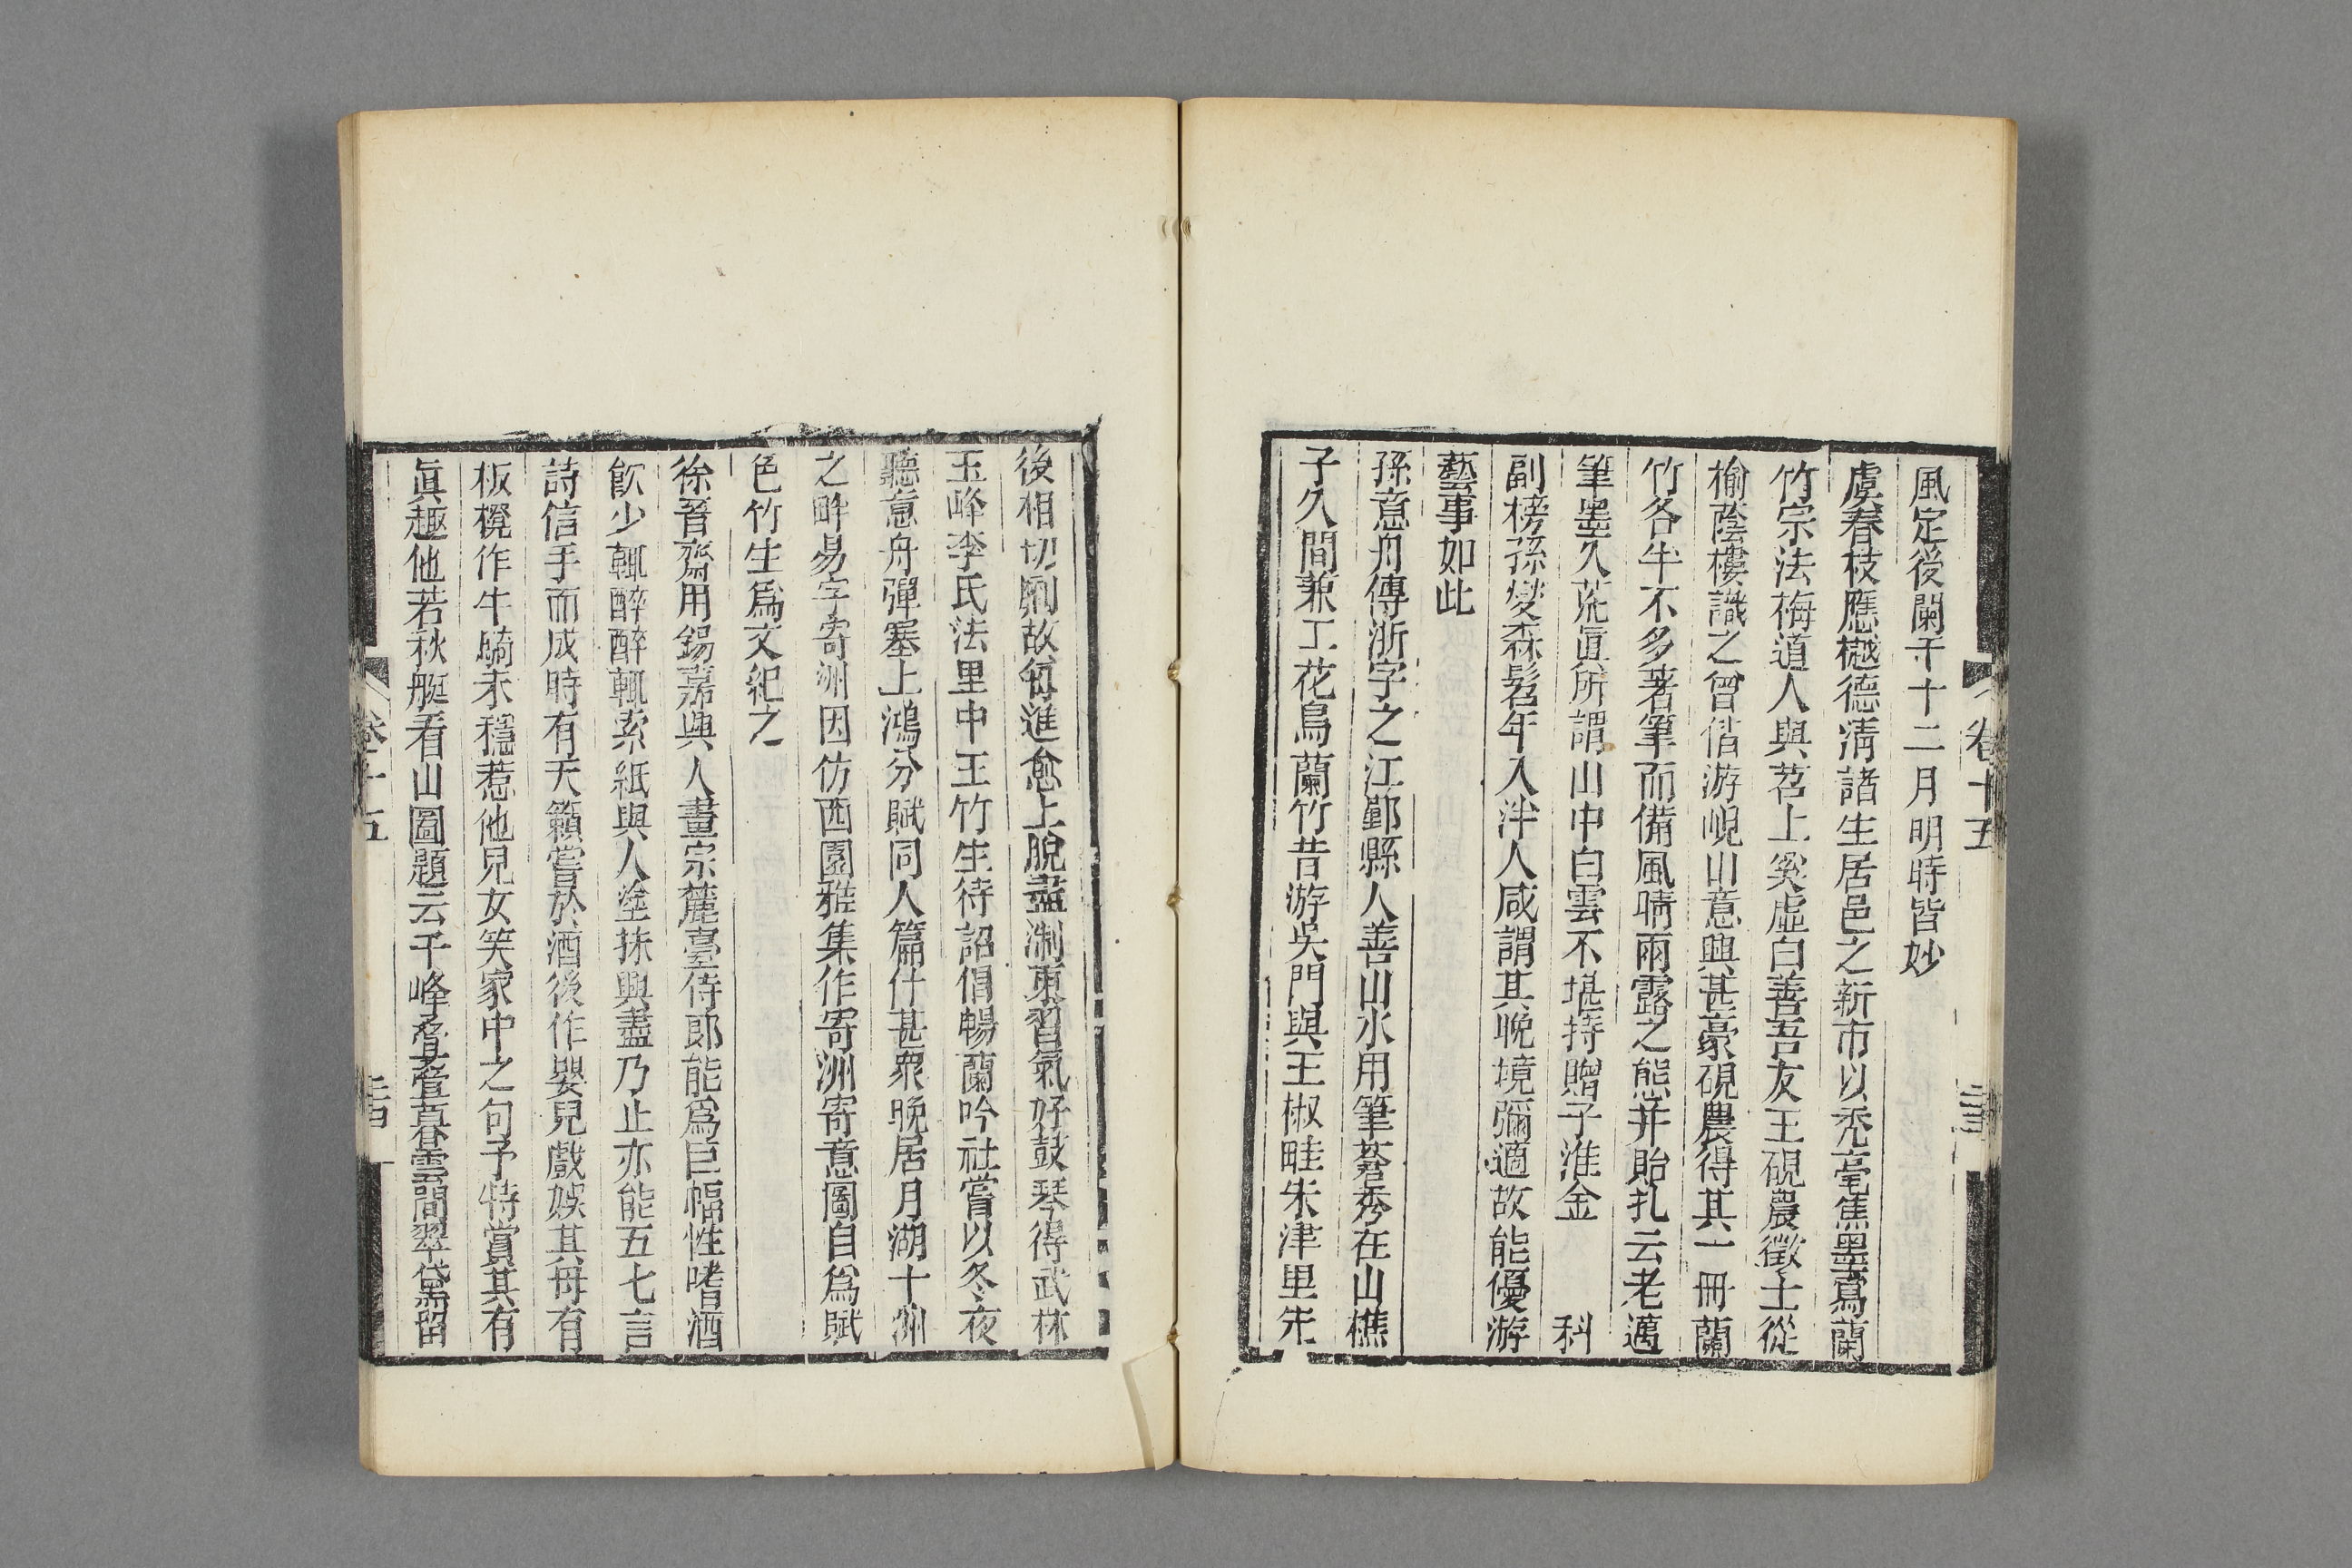 卷十五
風定後闌干十二月明時皆妙
虞春枝應樾德清諸生居邑之新市以禿毫焦墨寫蘭
竹宗法梅道人與苕上奚虛白善吾友王硯農徵士從
榆蔭樓識之曾偕游峴山意興甚豪硯農得其一冊蘭
竹各半不多著筆而備風晴雨露之態并貽札云老邁
筆墨久荒眞所謂山中白雲不堪持贈子淮金 科
副榜孫燮森髫年入泮人咸謂其晚境彌適故能優游
藝事如此
孫意舟傳浙字之江鄞縣人善山水用筆蒼秀在山樵
子久間兼工花鳥蘭竹昔游吳門與王椒畦朱津里先
後相切劘故銳進愈上脫盡淛東習氣好鼓琴得武林
玉峰李氏法里中王竹生待詔倡暢蘭吟社嘗以冬夜
聽意舟彈塞上鴻分賦同人篇什甚衆晚居月湖十洲
之畔易字寄洲因仿西園雅集作寄洲寄意圖自爲賦
色竹生爲文紀之
徐晉齋用錫嘉興人畫宗麓臺侍郎能爲巨幅性嗜酒
飲少輒醉醉輒索紙與人塗抹興盡乃止亦能五七言
詩信手而成時有天籟嘗於酒後作嬰兒戲娛其母有
板櫈作牛騎未穩惹他兒女笑家中之句予特賞其有
眞趣他若秋艇看山圖題云千峰疊疊暮雲間翠黛留
卷十五